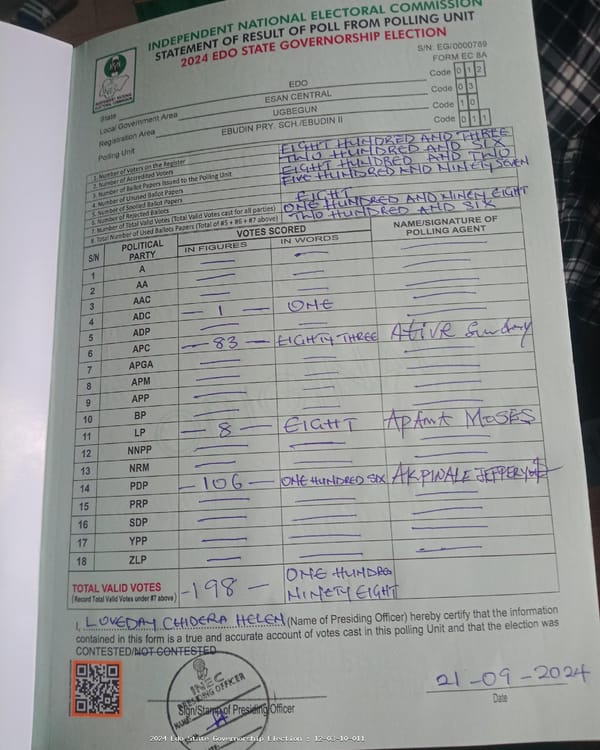 INDEPENDENT NATIONAL ELECTORAL COMMISSION
STATEMENT OF RESULT OF POLL FROM POLLING UNIT
2024 EDO STATE GOVERNORSHIP ELECTION
S/N: EG/0000789
FORM EC 8A
State EDO Code 0 1 2
Local Government Area ESAN CENTRAL Code 0 3
Registration Area UGBEGUN Code 1 0
Polling Unit EBUDIN PRY. SCH./EBUDIN II Code 0 1 1
1. Number of Voters on the Register EIGHT HUNDRED AND THREE
2. Number of Accredited Voters TWO HUNDRED AND SIX
3. Number of Ballot Papers Issued to the Polling Unit EIGHT HUNDRED AND TWO
4. Number of Unused Ballot Papers FIVE HUNDRED AND NINETY SEVEN
5. Number of Spoiled Ballot Papers
6. Number of Rejected Ballots EIGHT
7. Number of Total Valid Votes (Total Valid Votes cast for all parties) ONE HUNDRED AND NINEY EIGHT
8. Total Number of Used Ballots Papers (Total of #5 + #6 + #7 above) TWO HUNDRED AND SIX
S/N POLITICAL PARTY VOTES SCORED NAME/SIGNATURE OF POLLING AGENT
IN FIGURES IN WORDS
1 A
2 AA
3 AAC
4 ADC - 1 - ONE
5 ADP
6 APC - 83 - EIGHTY THREE Ative Sunday
7 APGA
8 APM
9 APP
10 BP
11 LP - 8 - EIGHT MOSES
12 NNPP
13 NRM
14 PDP - 106 - ONE HUNDRED SIX AKPINALE JEFFERY
15 PRP
16 SDP
17 YPP
18 ZLP
TOTAL VALID VOTES - 198 - ONE HUNDRED
(Record Total Valid Votes under #7 above) NINETY EIGHT
I, LOVEDAY CHIDERA HELEN (Name of Presiding Officer) hereby certify that the information
contained in this form is a true and accurate account of votes cast in this polling Unit and that the election was
CONTESTED/NOT CONTESTED
INEC
PRESIDING OFFICER
NAME
Sign/Stamp of Presiding Officer
21-09-2024
Date
2024 Edo State Governorship Election : 12-03-10-011